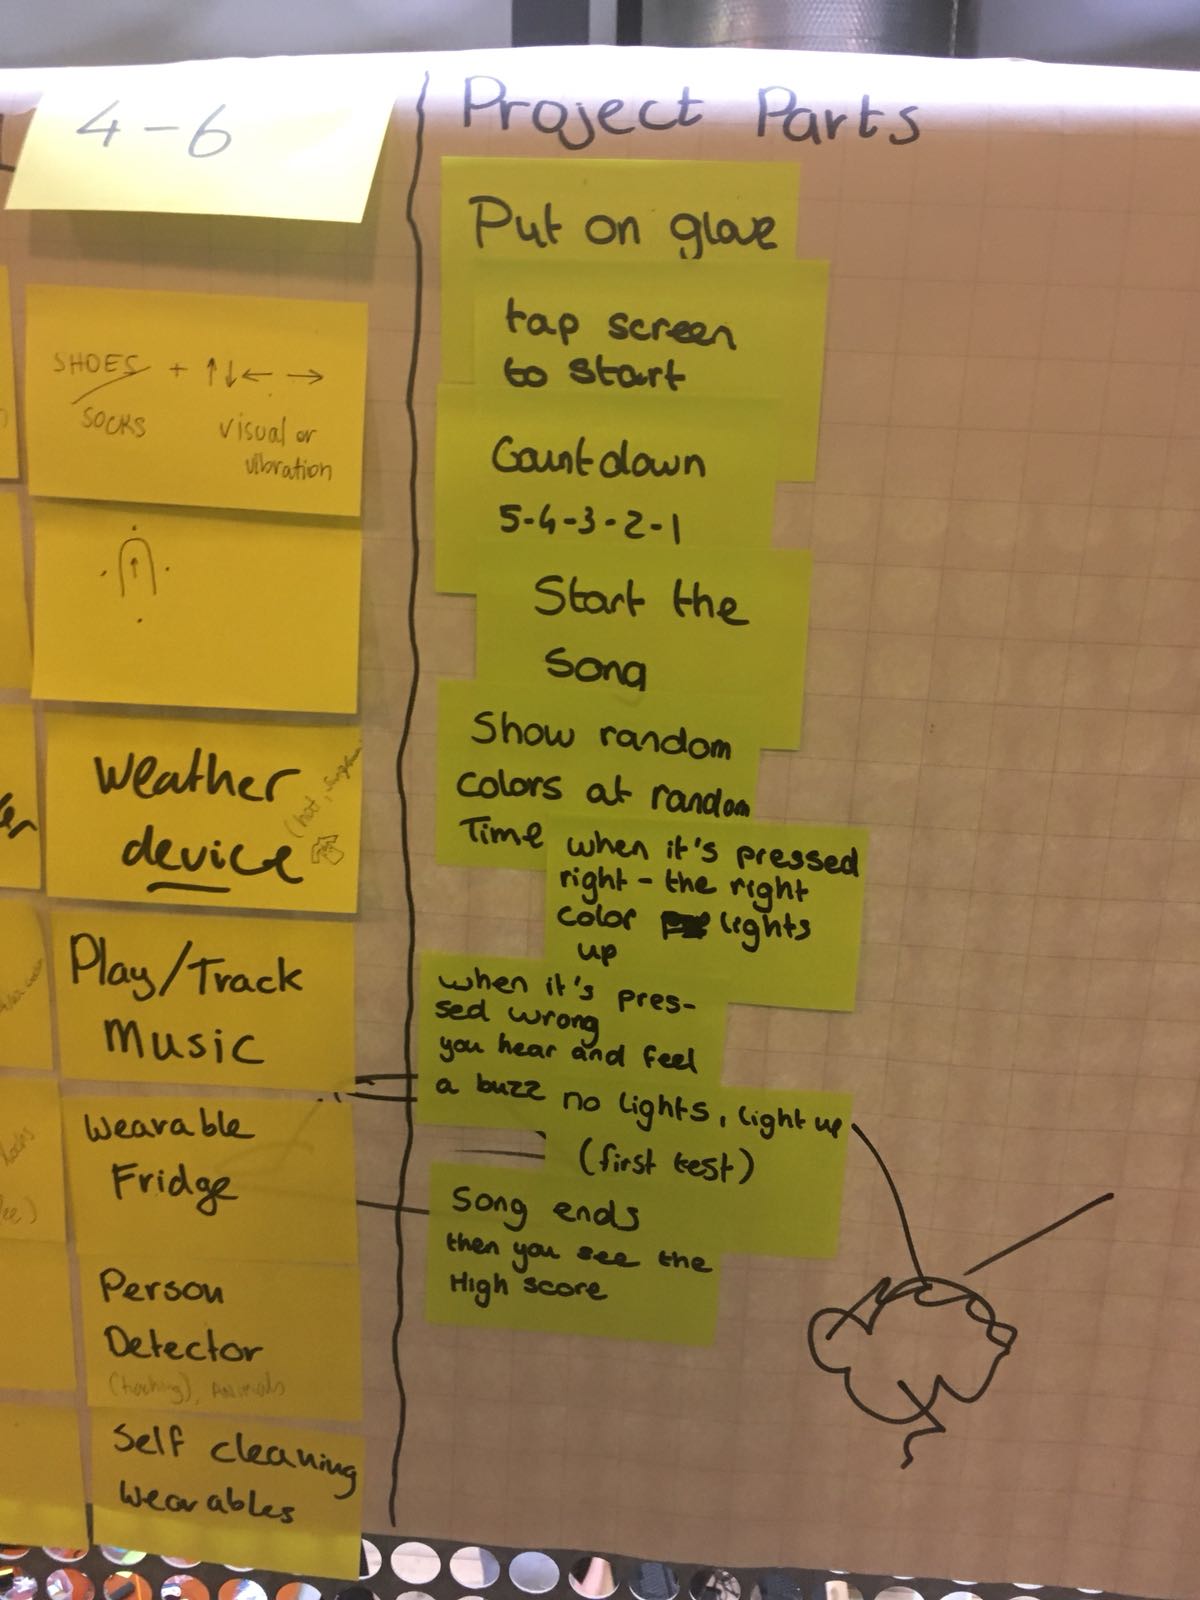 4-6
SHOES + ↑↓← →
SOCKS visual or
vibration
↑
Weather
device
Play/Track
Music
Wearable
Fridge
Person
Detector
(tracking), Animals
Self cleaning
wearables
Project Parts
Put on glove
tap screen
to start
Countdown
5-4-3-2-1
Start the
song
Show random
colors at random
Time
when it's pressed
right - the right
color lights
up
when it's pres-
sed wrong
you hear and feel
a buzz
no lights, light up
(first test)
Song ends
then you see the
High score